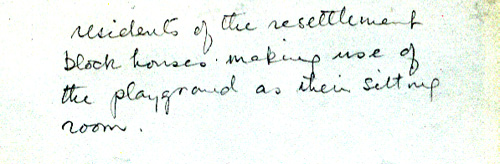 residents of the resettlement
block houses making use of
the playground as their sitting
room.